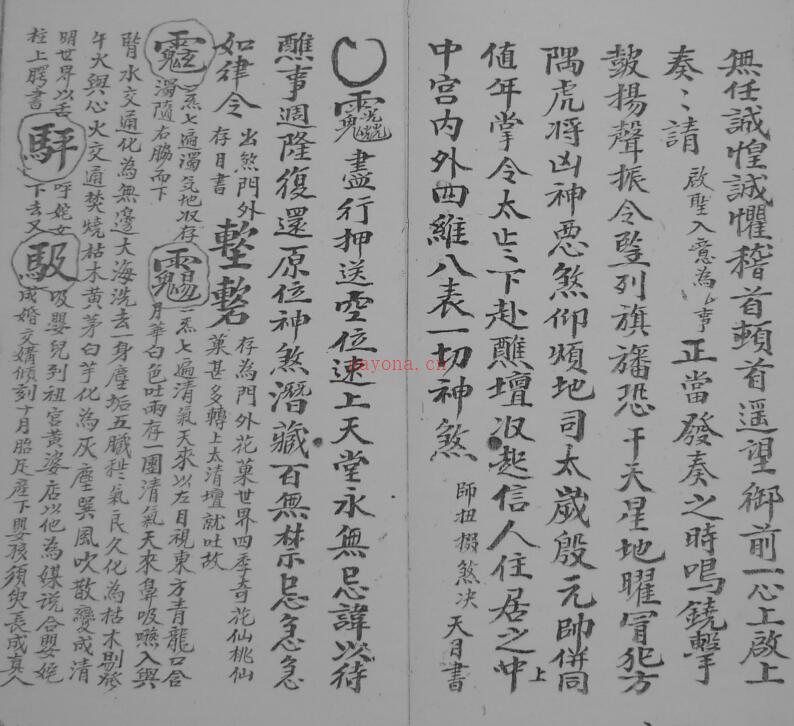 無任誠惶誠懼稽首頓首遥望御前一心上啟上
奏〻請 啟聖入意為 亨 正當發奏之時鳴鐃擊
皷揚聲振令竪列旗旛恐干天星地曜冐犯方
隅虎将凶神悪煞仰煩地司太嵗殷元帥併同
值年掌令太歲〻下赴醮壇収起信人住居之中上
中宫内外四維八表一切神煞 師扭撮煞决 天月書
盡行押送空位速上天堂永無忌諱以待
醮事週隆復還原位神煞潛藏百無禁忌急〻
如律令 出煞門外 存月書 存為門外花菓世界四季奇花仙桃仙
菓甚多轉上太清壇就吐故
一炁七遍濁氣地収存
濁隨右脇而下 一炁七遍清氣天來以左目視東方青龍口含
月華白色吐兩存一團清氣天來鼻吸嚥入與
腎水交通化為無邊大海洗去一身塵垢五臟秽氣良久化為枯木剔發
午火與心火交通焚燒枯木黄茅白芋化為灰塵巽風吹散變成清
明世界以舌 呼姹女 吸嬰兒到祖宫黄婆店以他為媒说合嬰姹
柱上腭書 下去又 成婚交媾傾刻十月胎足産下嬰孩須臾長成真人
nayona.cn